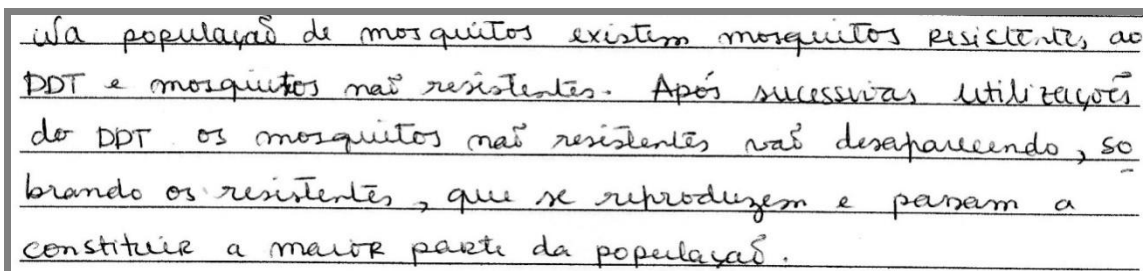 Na população de mosquitos existem mosquitos resistentes ao
DDT e mosquitos não resistentes. Após sucessivas utilizações
do DDT os mosquitos não resistentes vão desaparecendo, so
brando os resistentes, que se reproduzem e passam a
constituir a maior parte da população.